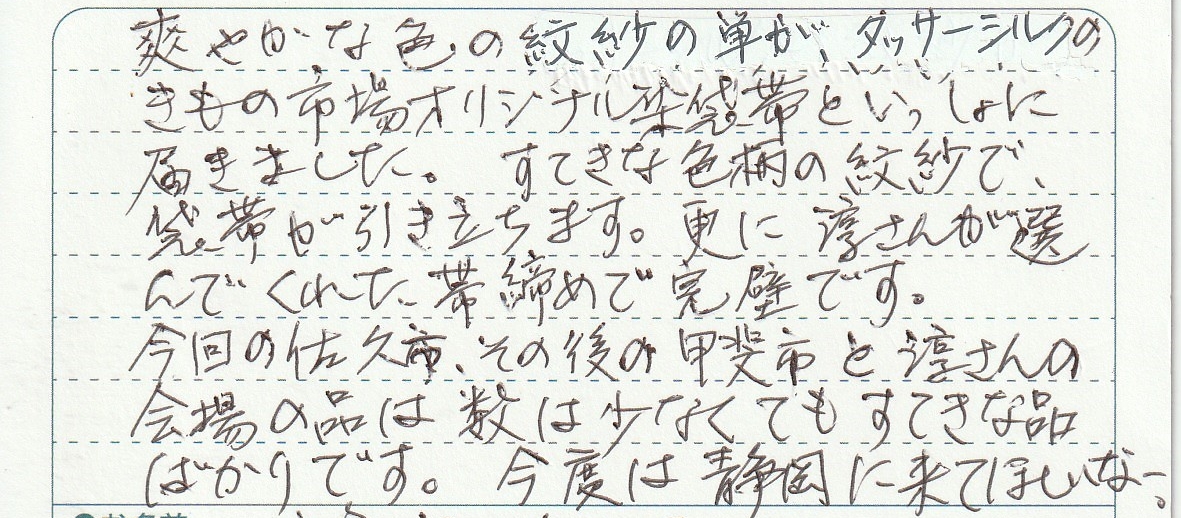 爽やかな色の紋紗の単がタッサーシルクの
きもの市場オリジナル染袋帯といっしょに
届きました。すてきな色柄の紋紗で、
袋帯が引き立ちます。更に淳さんが選
んでくれた帯締めで完璧です。
今回の佐久市、その後の甲斐市と淳さんの
会場の品は数は少なくてもすてきな品
ばかりです。今度は静岡に来てほしいなー。